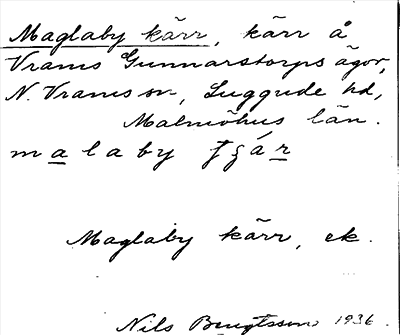 Maglaby kärr, kärr å
Vrams Gunnarstorps ägor,
N. Vrams sn, Luggude hd,
Malmöhus län.
malaby
Maglaby kärr, ek.
Nils Bengtsson 1936.